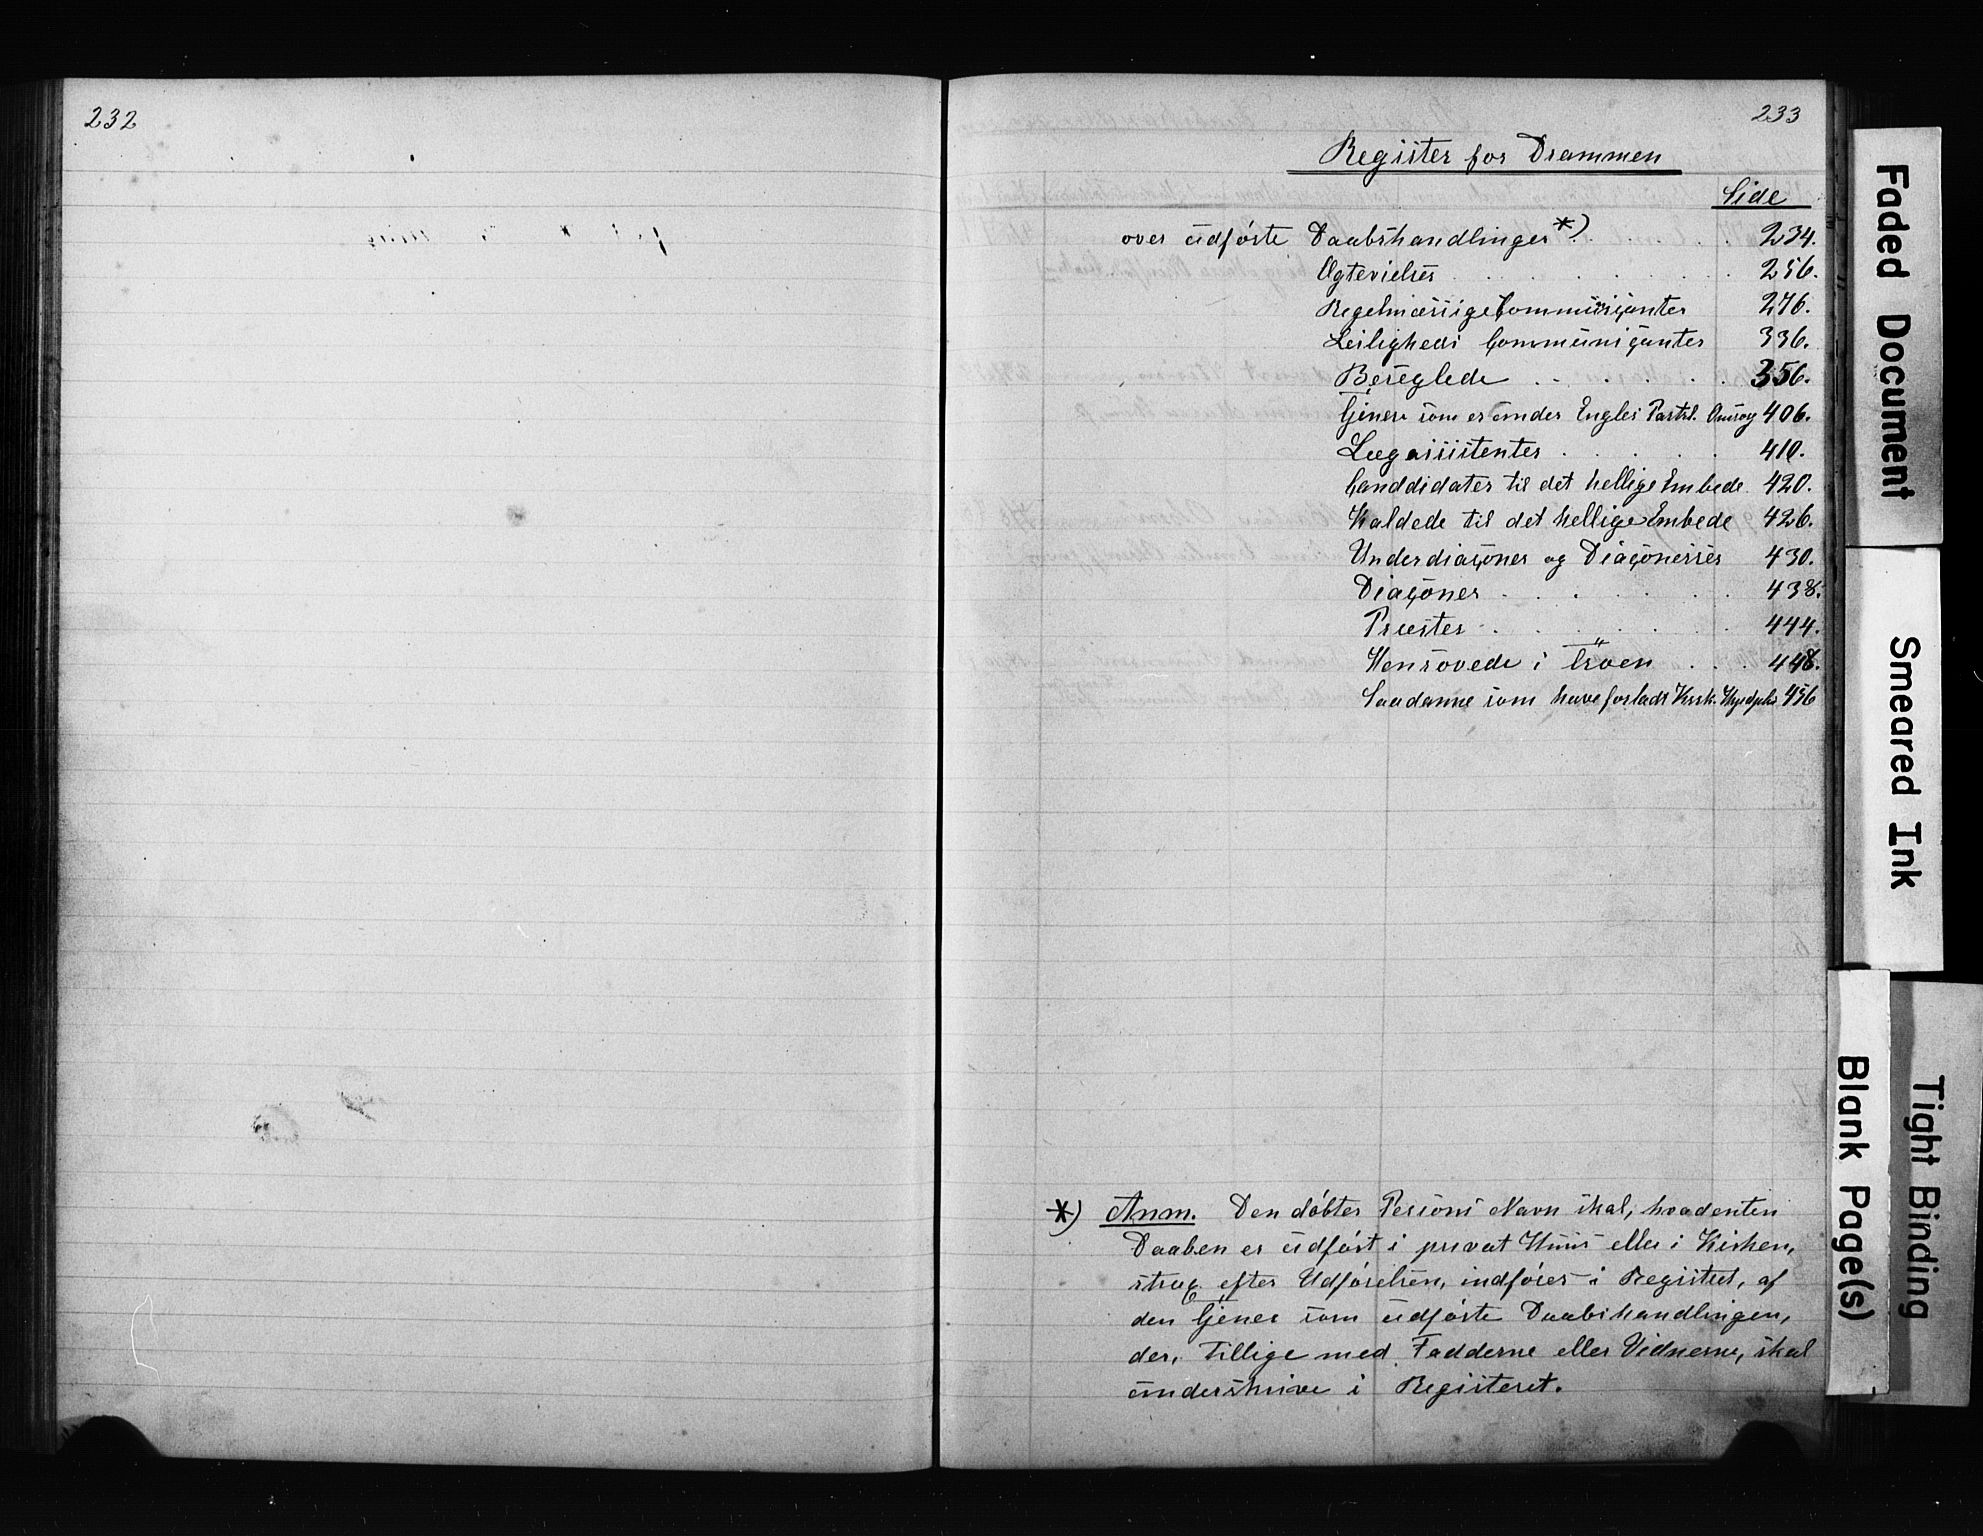 232
233
Register for Drammen
Side
over udførte Daabshandlinger *) . . . . 234.
Ægtevielser . . . . . . . 256.
Regelmæssige Communiçanter 276.
Leiligheds Communiçanter 336.
Beseglede . . . . . . 356.
Tjenere som er under Engles Parts. Omsorg 406.
Lægassistenter . . . . . 410.
Canddidater til det hellige Embede 420.
Kaldede til det hellige Embede 426.
Underdiaçoner og Diaçonesser 430.
Diaçoner . . . . . . 438.
Præster . . . . . . 444.
Hensovede i Troen . . . 448.
Saadanne som have forladt Kirk. 456
*) Anm. Den døbtes Persons Navn skal, hvadenten
Daaben er udført i privat Huus eller i Kirken,
strax efter Udførelsen, indføres i Registret, af
den Tjener som udførte Daabshandlingen,
der, tillige med Fadderne eller Vidnerne, skal
underskrive i Registeret.
Faded Document
Smeared Ink
Tight Binding
Blank Page(s)